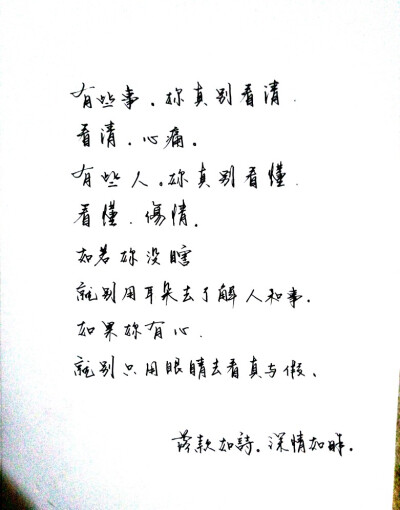 有些事.妳真别看清.
看清.心痛。
有些人。妳真别看懂.
看懂.傷情。
如若妳没瞎
就别用耳朵去了解人和事.
如果妳有心.
就别只用眼睛去看真与假、
落款如詩.深情如昨.